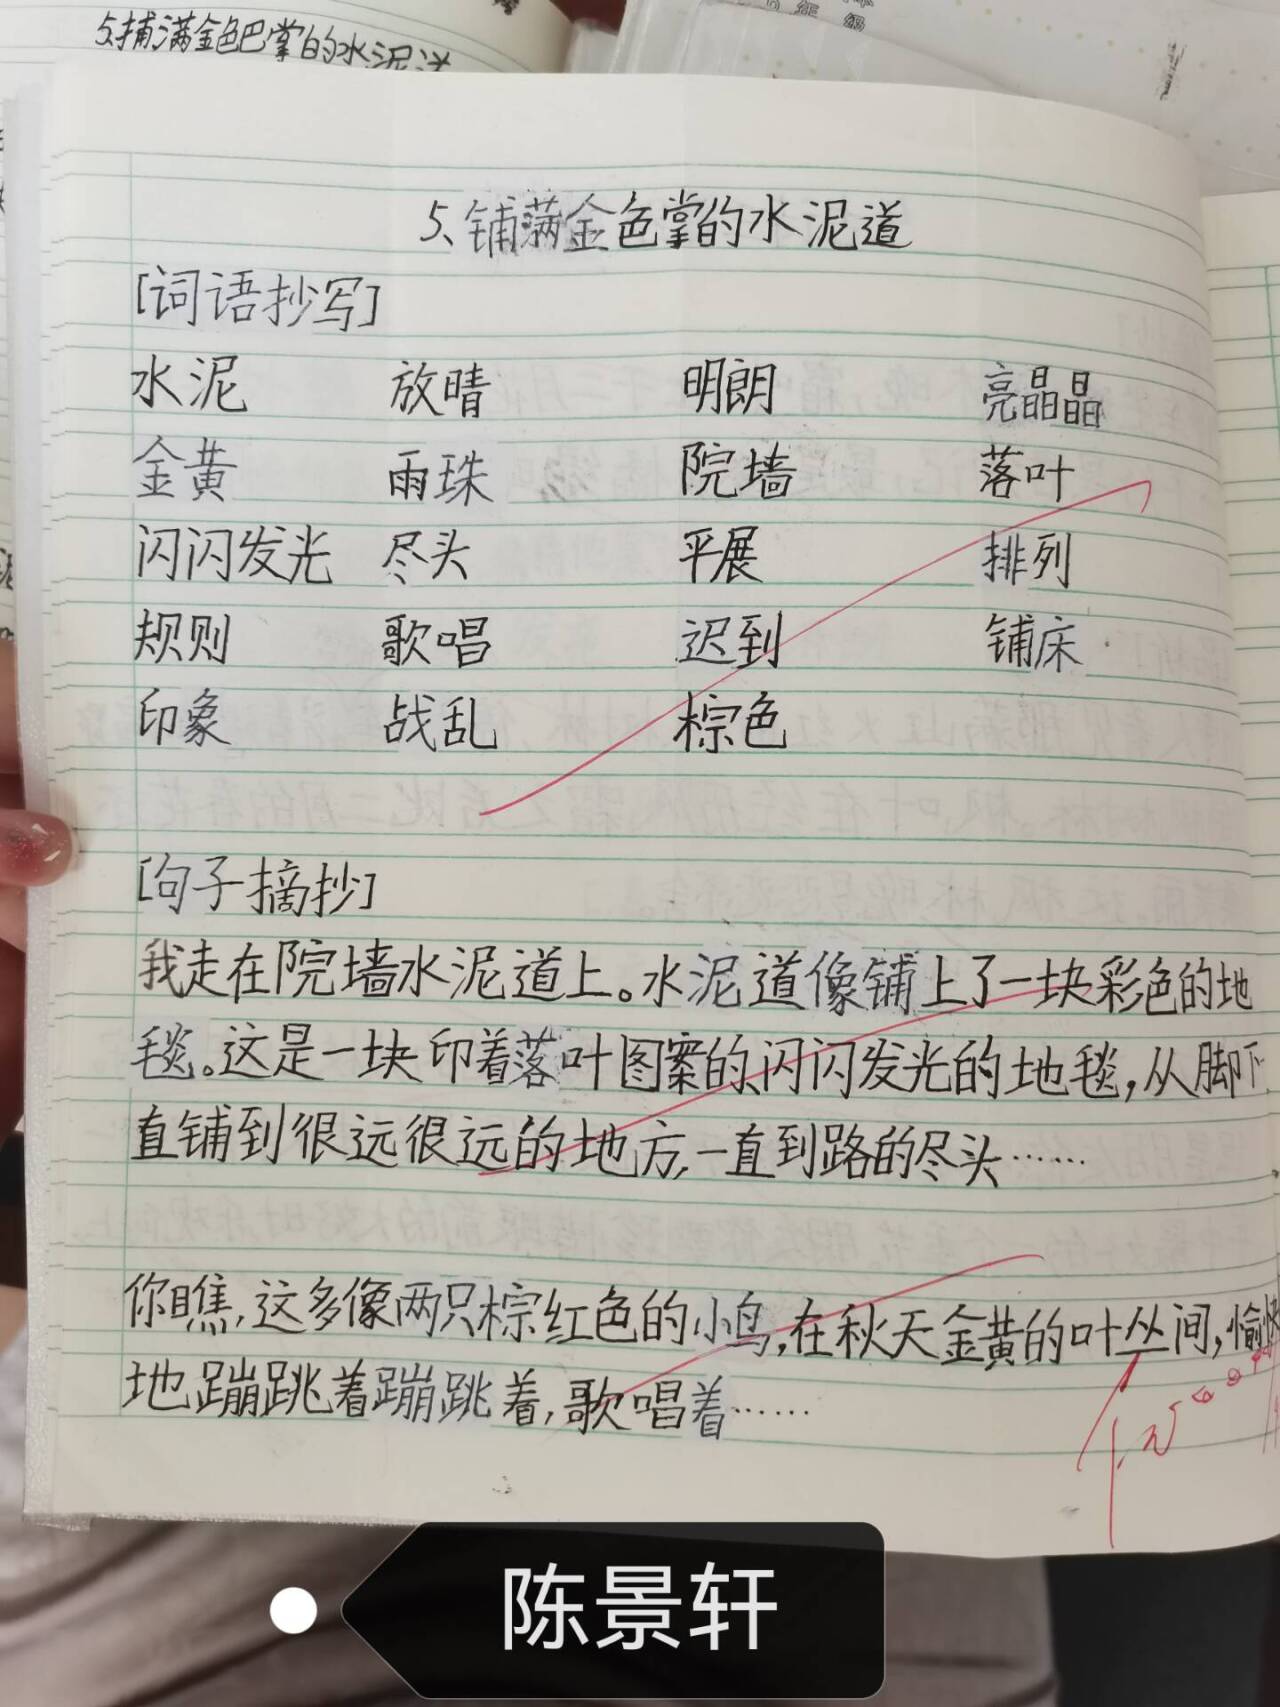 5.捕满金色巴掌的水泥道
年级
5、铺满金色掌的水泥道
[词语抄写]
水泥 放晴 明朗 亮晶晶
金黄 雨珠 院墙 落叶
闪闪发光 尽头 平展 排列
规则 歌唱 迟到 铺床
印象 战乱 棕色
[句子摘抄]
我走在院墙水泥道上。水泥道像铺上了一块彩色的地
毯。这是一块印着落叶图案的、闪闪发光的地毯,从脚下
直铺到很远很远的地方,一直到路的尽头……
你瞧,这多像两只棕红色的小鸟,在秋天金黄的叶丛间,愉快
地蹦跳着蹦跳着,歌唱着……
陈景轩